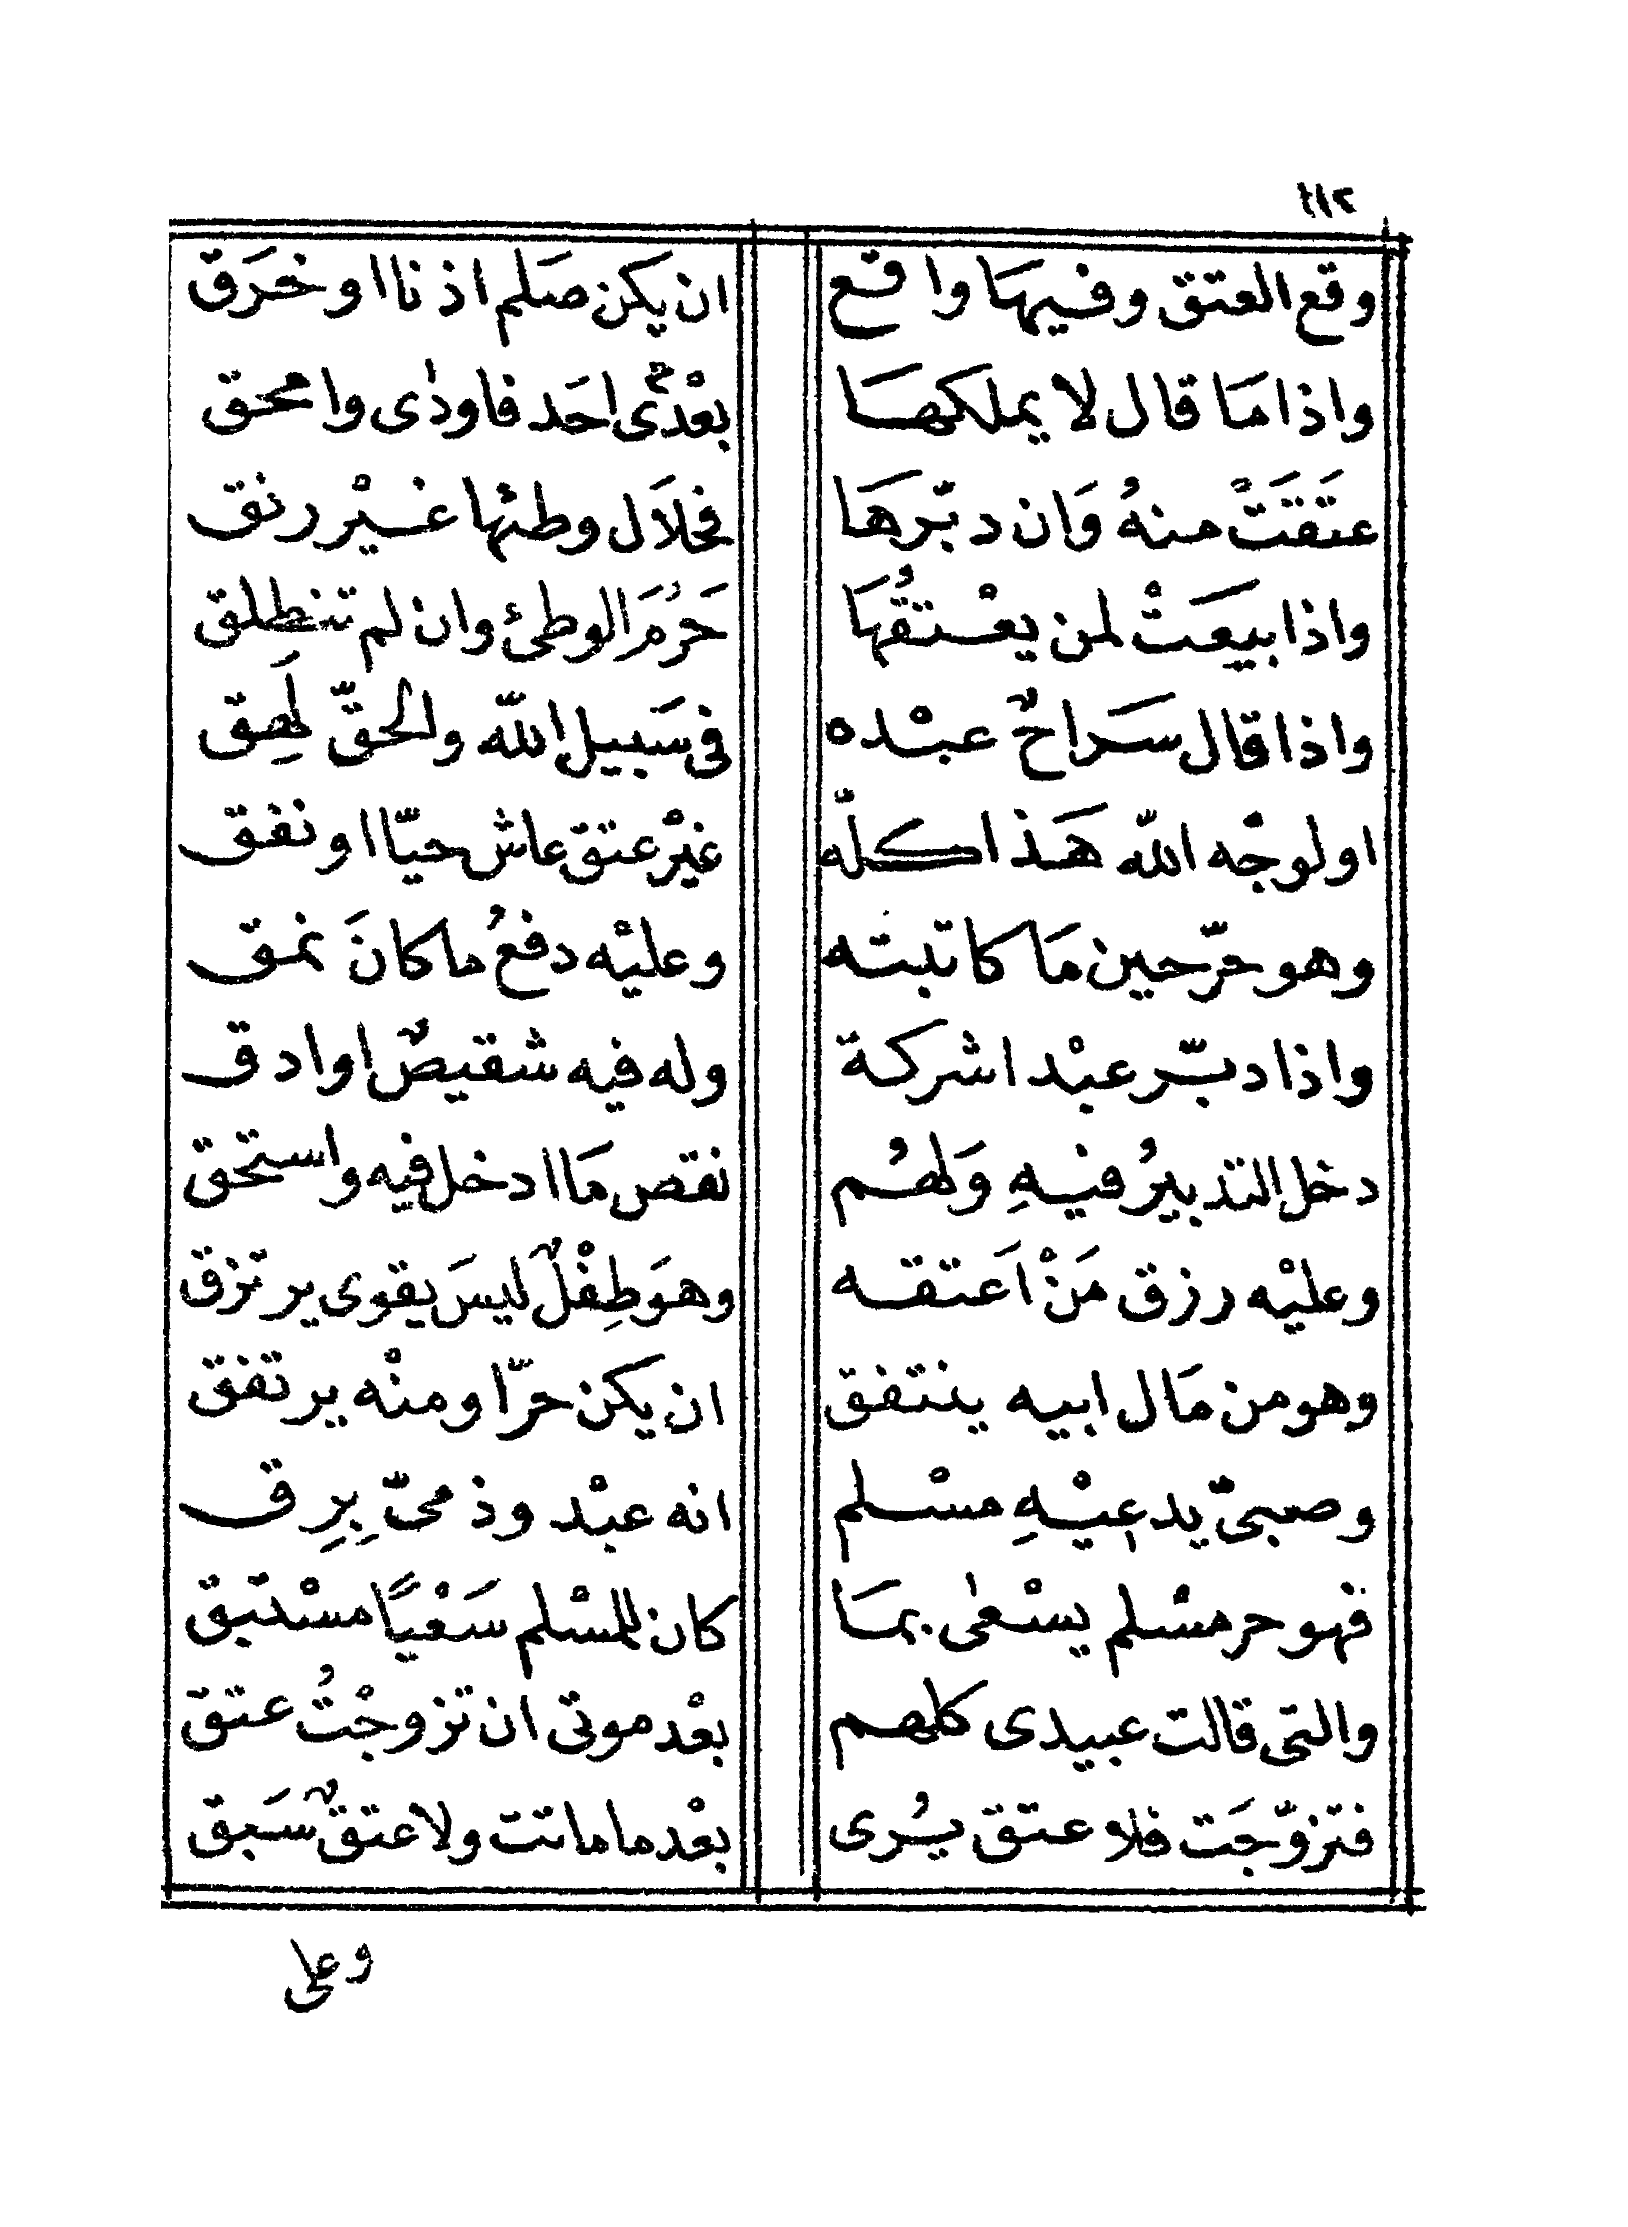 ١١٢
وقع العتق وفيها واقع ان يكن صلم اذنا او خرق
واذا مَا قال لا يملكهَا بعْدى احَد فاوذى وامحق
عتَقتْ منهُ وَان دبّرهَا فحلاَل وطئها غيْر رنق
واذا بيعَتْ لمن يعْتقُها حَرُمَ الوطئ وان لم تنطلق
واذا قال سَراحٌ عبْده فى سَبيل الله والحقّ لَصِق
او لوجْه الله هَذا كلّه غيْر عتق عاش حيّا او نفق
وهو حرّ حين مَا كاتبته وعليْه دفعُ ما كانَ نمق
واذا دبّر عبْد اشركة وله فيه شقيصٌ او ادق
دخل التدبيرُ فيهِ وَلهُم نقص مَا ادخل فيه واستحق
وعليْه رزق مَنْ اَعتقه وهوَ طِفْلٌ ليسَ يقوى يرتزق
وهو من مَال ابيه ينتفق ان يكن حرّا ومنْه يرتفق
وصبىّ يدعيْهِ مسْلم انه عبْد وذمىّ بِرِق
فهو حر مسْلم يسْعى بمَا كان للمسْلم سَعْيًا مسْتبق
والتى قالت عبيدى كلهم بعْد موتى ان تزوجْتُ عتق
فتزوّجَت فلا عتق يُرى بعْد ما ماتت ولا عتقٌ سَبق
وعلى